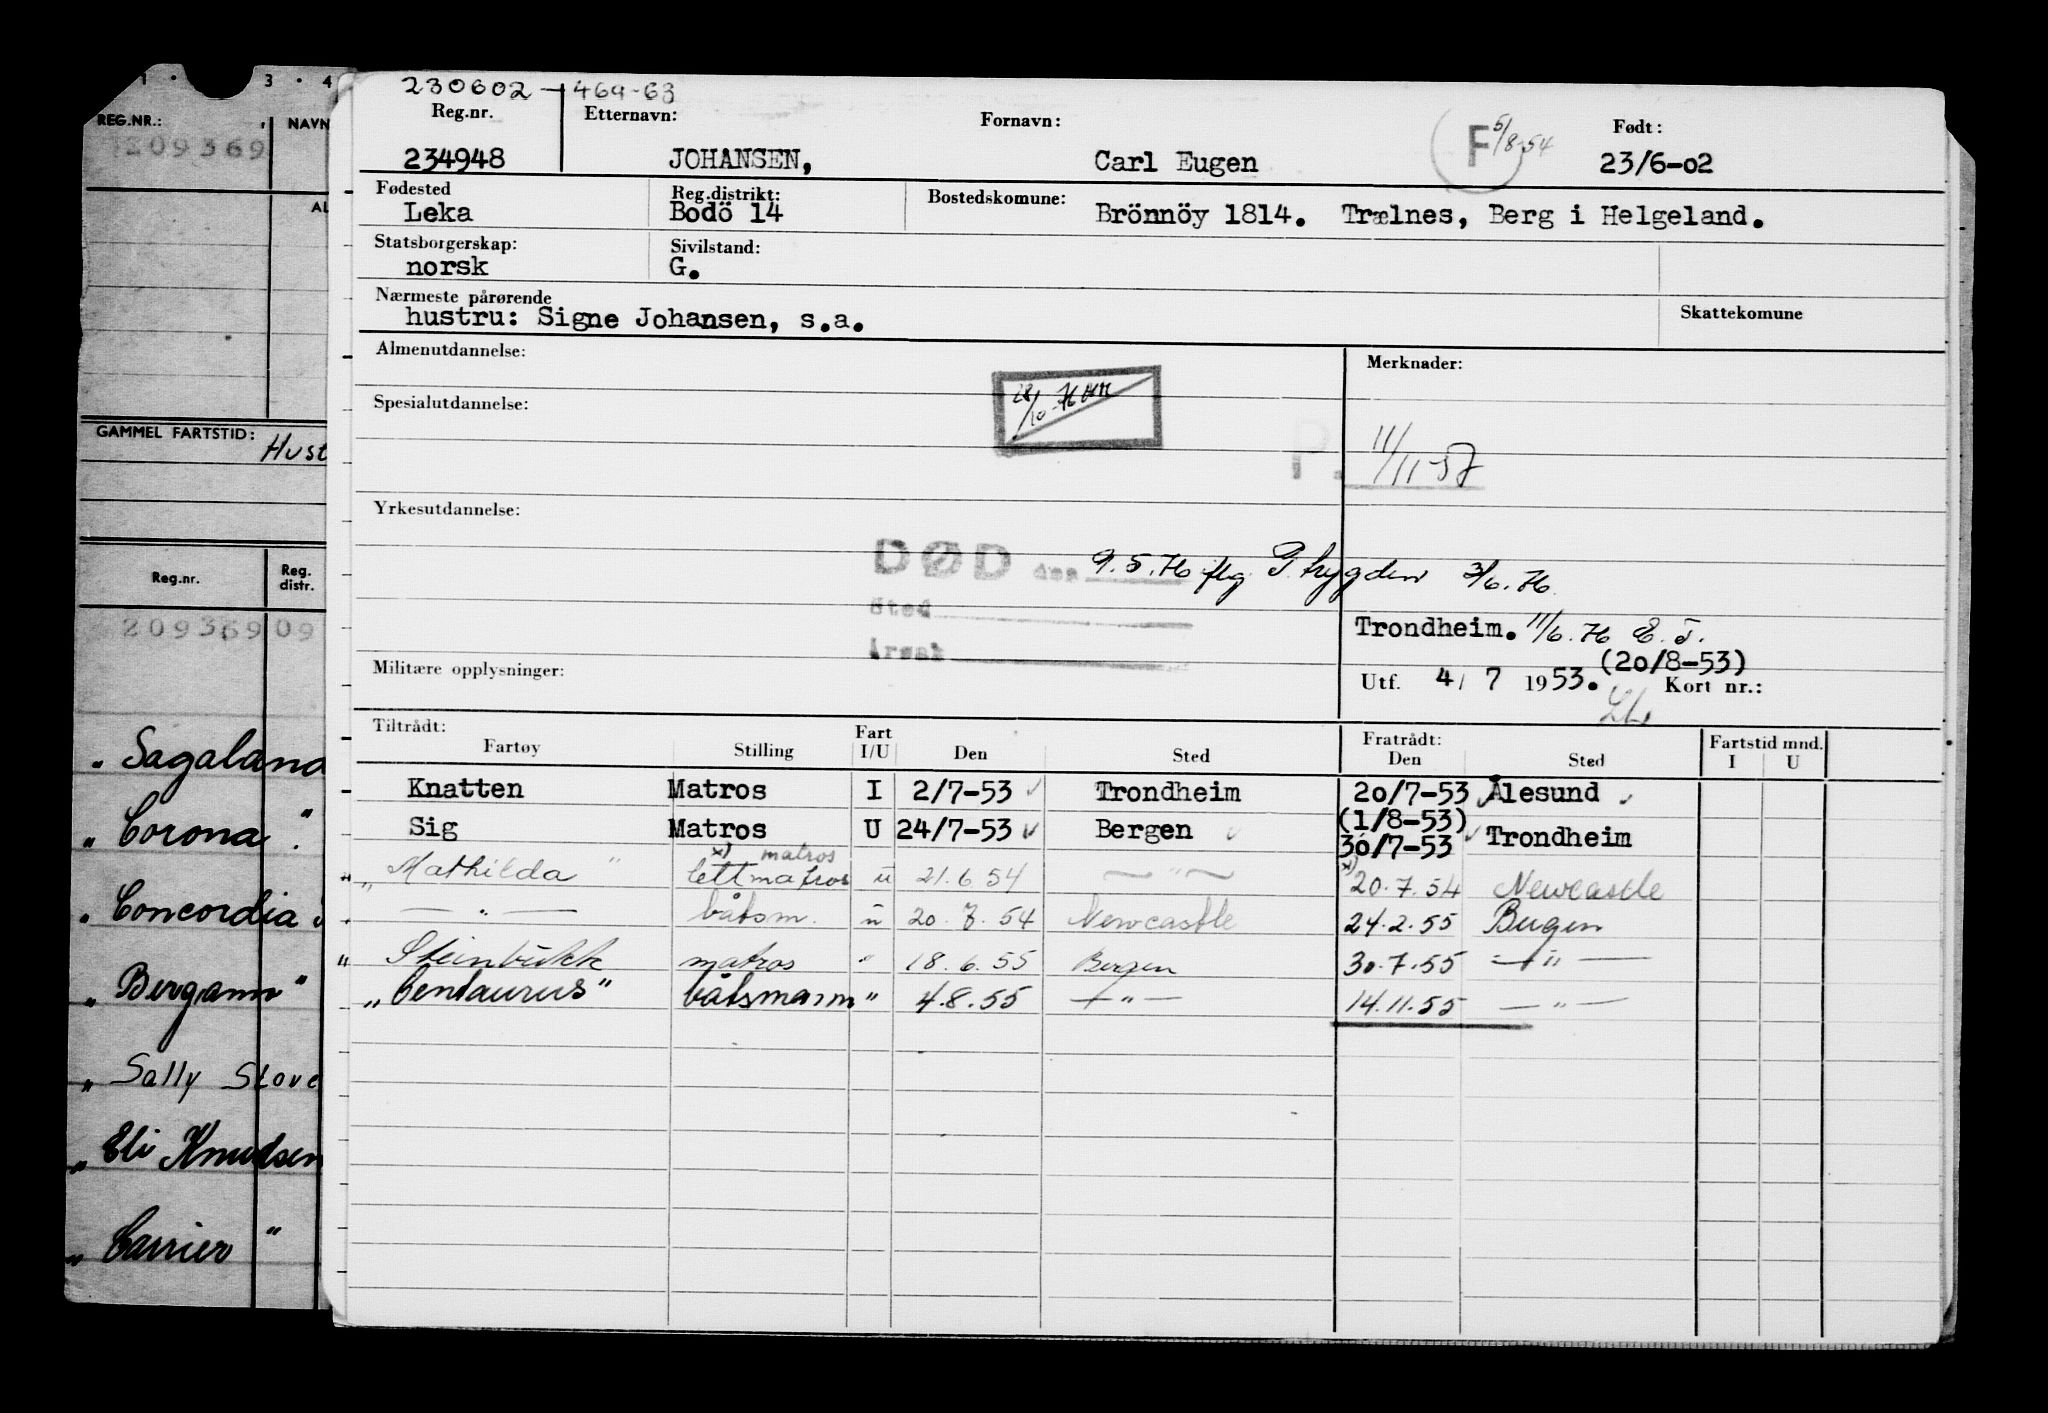 1 · 3 · 4
REG.NR.: NAVN
209369
AL
GAMMEL FARTSTID: Hust
Reg.nr. Reg. distr.
209369 09
" Sagaland
" Corona "
" Concordia
" Bergann "
" Sally Stove
" Eli Knudsen
" Carrier "
230602 - 464-63
Reg.nr. Etternavn: Fornavn: Født:
234948 JOHANSEN, Carl Eugen F 5/8-54 23/6-02
Fødested Reg.distrikt: Bostedskomune:
Leka Bodö 14 Brönnöy 1814. Trælnes, Berg i Helgeland.
Statsborgerskap: Sivilstand:
norsk G.
Nærmeste pårørende Skattekomune
hustru: Signe Johansen, s.a.
Almenutdannelse: Merknader:
28/10-76
Spesialutdannelse:
P. 11/11-57
Yrkesutdannelse:
DØD den 9.5.76 flg. P.trygden 3/6.76
Sted
Årsak
Trondheim. 11/6.76 E.T.
(20/8-53)
Militære opplysninger: Utf. 4/ 7 1953. Kort nr.:
Tiltrådt: Fratrådt: Fartstid mnd.
Fartøy Stilling Fart I/U Den Sted Den Sted I U
Knatten Matros I 2/7-53 Trondheim 20/7-53 Ålesund
Sig Matros U 24/7-53 Bergen (1/8-53) 30/7-53 Trondheim
x) matros
" Mathilda " lettmatros u 21.6.54 — " — x) 20.7.54 Newcastle
— " — båtsm. u 20.7.54 Newcastle 24.2.55 Bergen
" Steinbukk matros " 18.6.55 Bergen 30.7.55 — " —
" Centaurus " båtsmann " 4.8.55 — " — 14.11.55 — " —